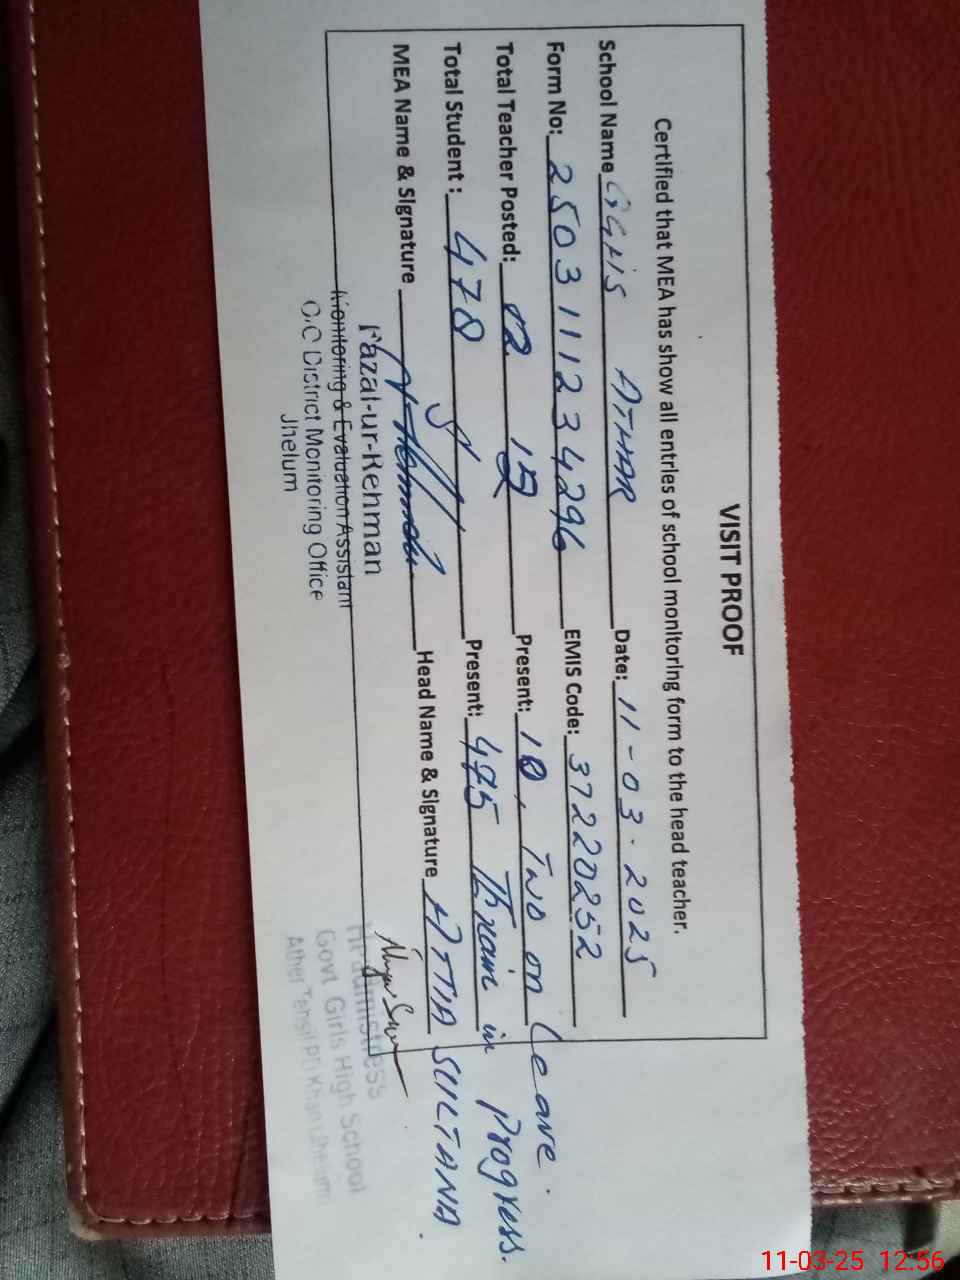 VISIT PROOF
Certified that MEA has show all entries of school monitoring form to the head teacher.
School Name GGHS ATHAR Date: 11-03-2025
Form No: 2503111234296 EMIS Code: 37220252
Total Teacher Posted: 12 Present: 10, Two on Leave.
Total Student: 478 Present: 475 in Progress.
MEA Name & Signature Head Name & Signature ATTIA SULTANA
Fazal-ur-Rehman
Monitoring & Evaluation Assistant
O/O District Monitoring Office
Jhelum
Headmistress
Govt. Girls High School
Ather Tehsil PD Khan Jhelum
11-03-25 12:56